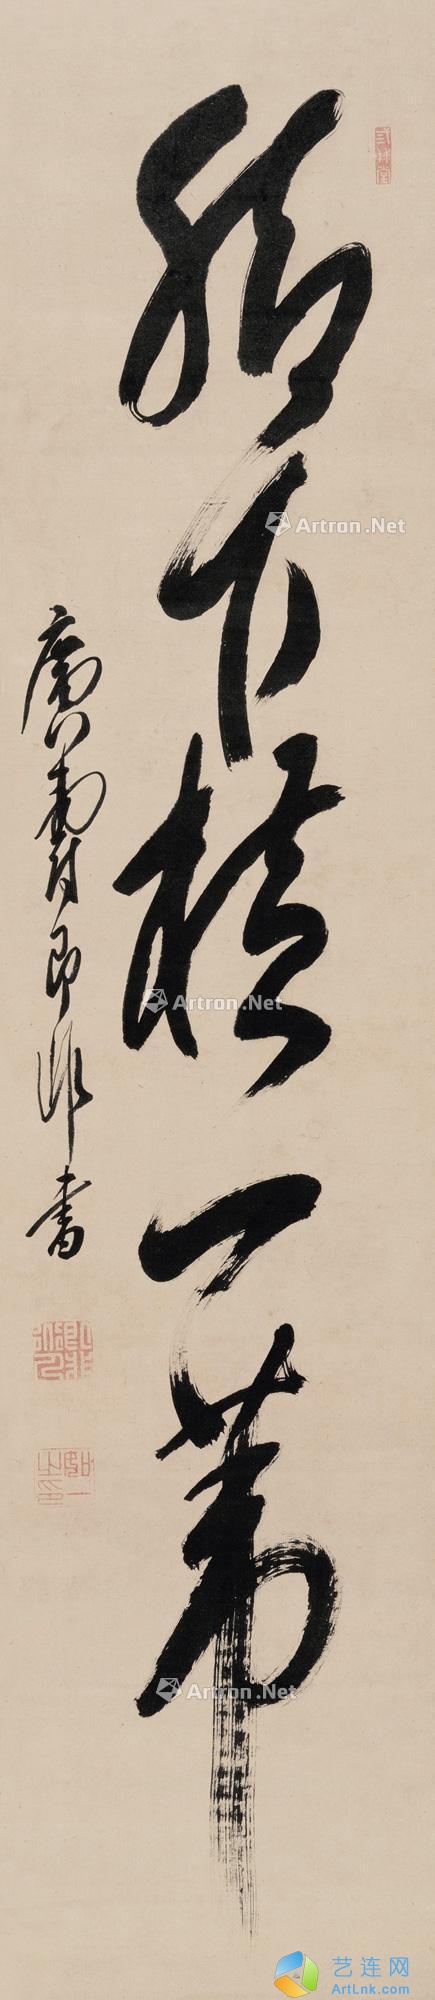 脚下橫一葦
廣壽即非書
如一之印
Artron.Net
Artron.Net
Artron.Net
艺连网
ArtLnk.com